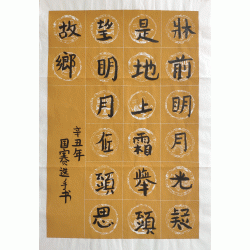 牀前明月光疑
是地上霜舉頭
望明月低頭思
故鄉
辛丑年
国手书